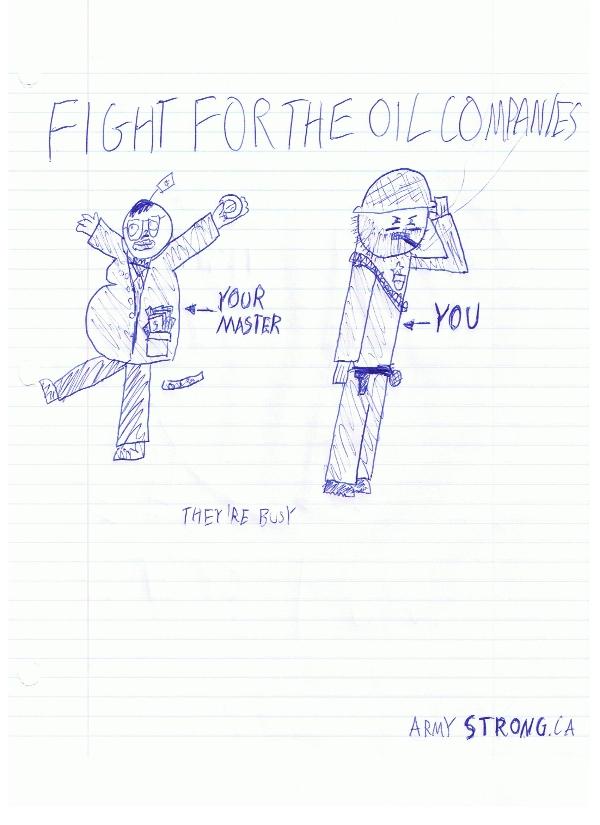 FIGHT FOR THE OIL COMPANIES
YOUR
MASTER
YOU
THEY'RE BUSY
ARMY STRONG.CA